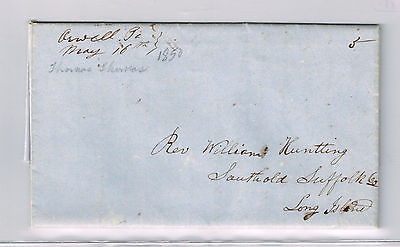 Orwell Pa }
May 16th }
1850
5
Thomas Thomas
Rev William Huntting
Southold Suffolk Co
Long Island